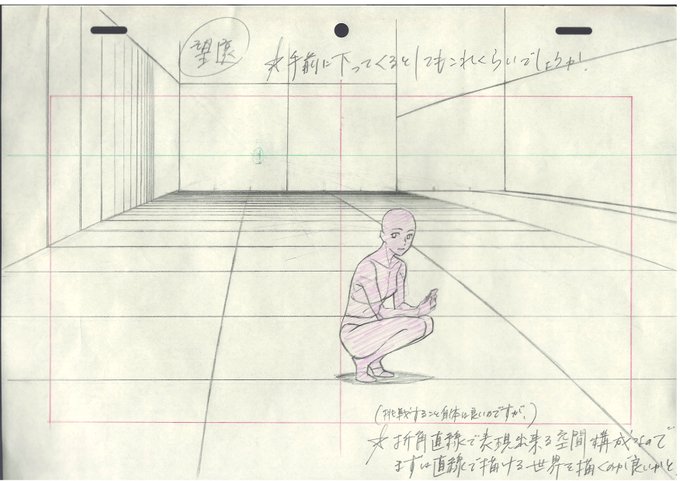 望遠
☆手前に下ってくるとしてもこれくらいでしょうか!
(挑戦すること自体は良いのですが、)
☆折角直線で表現出来る空間構成なので
まずは直線で描ける世界を描くのが良いかと